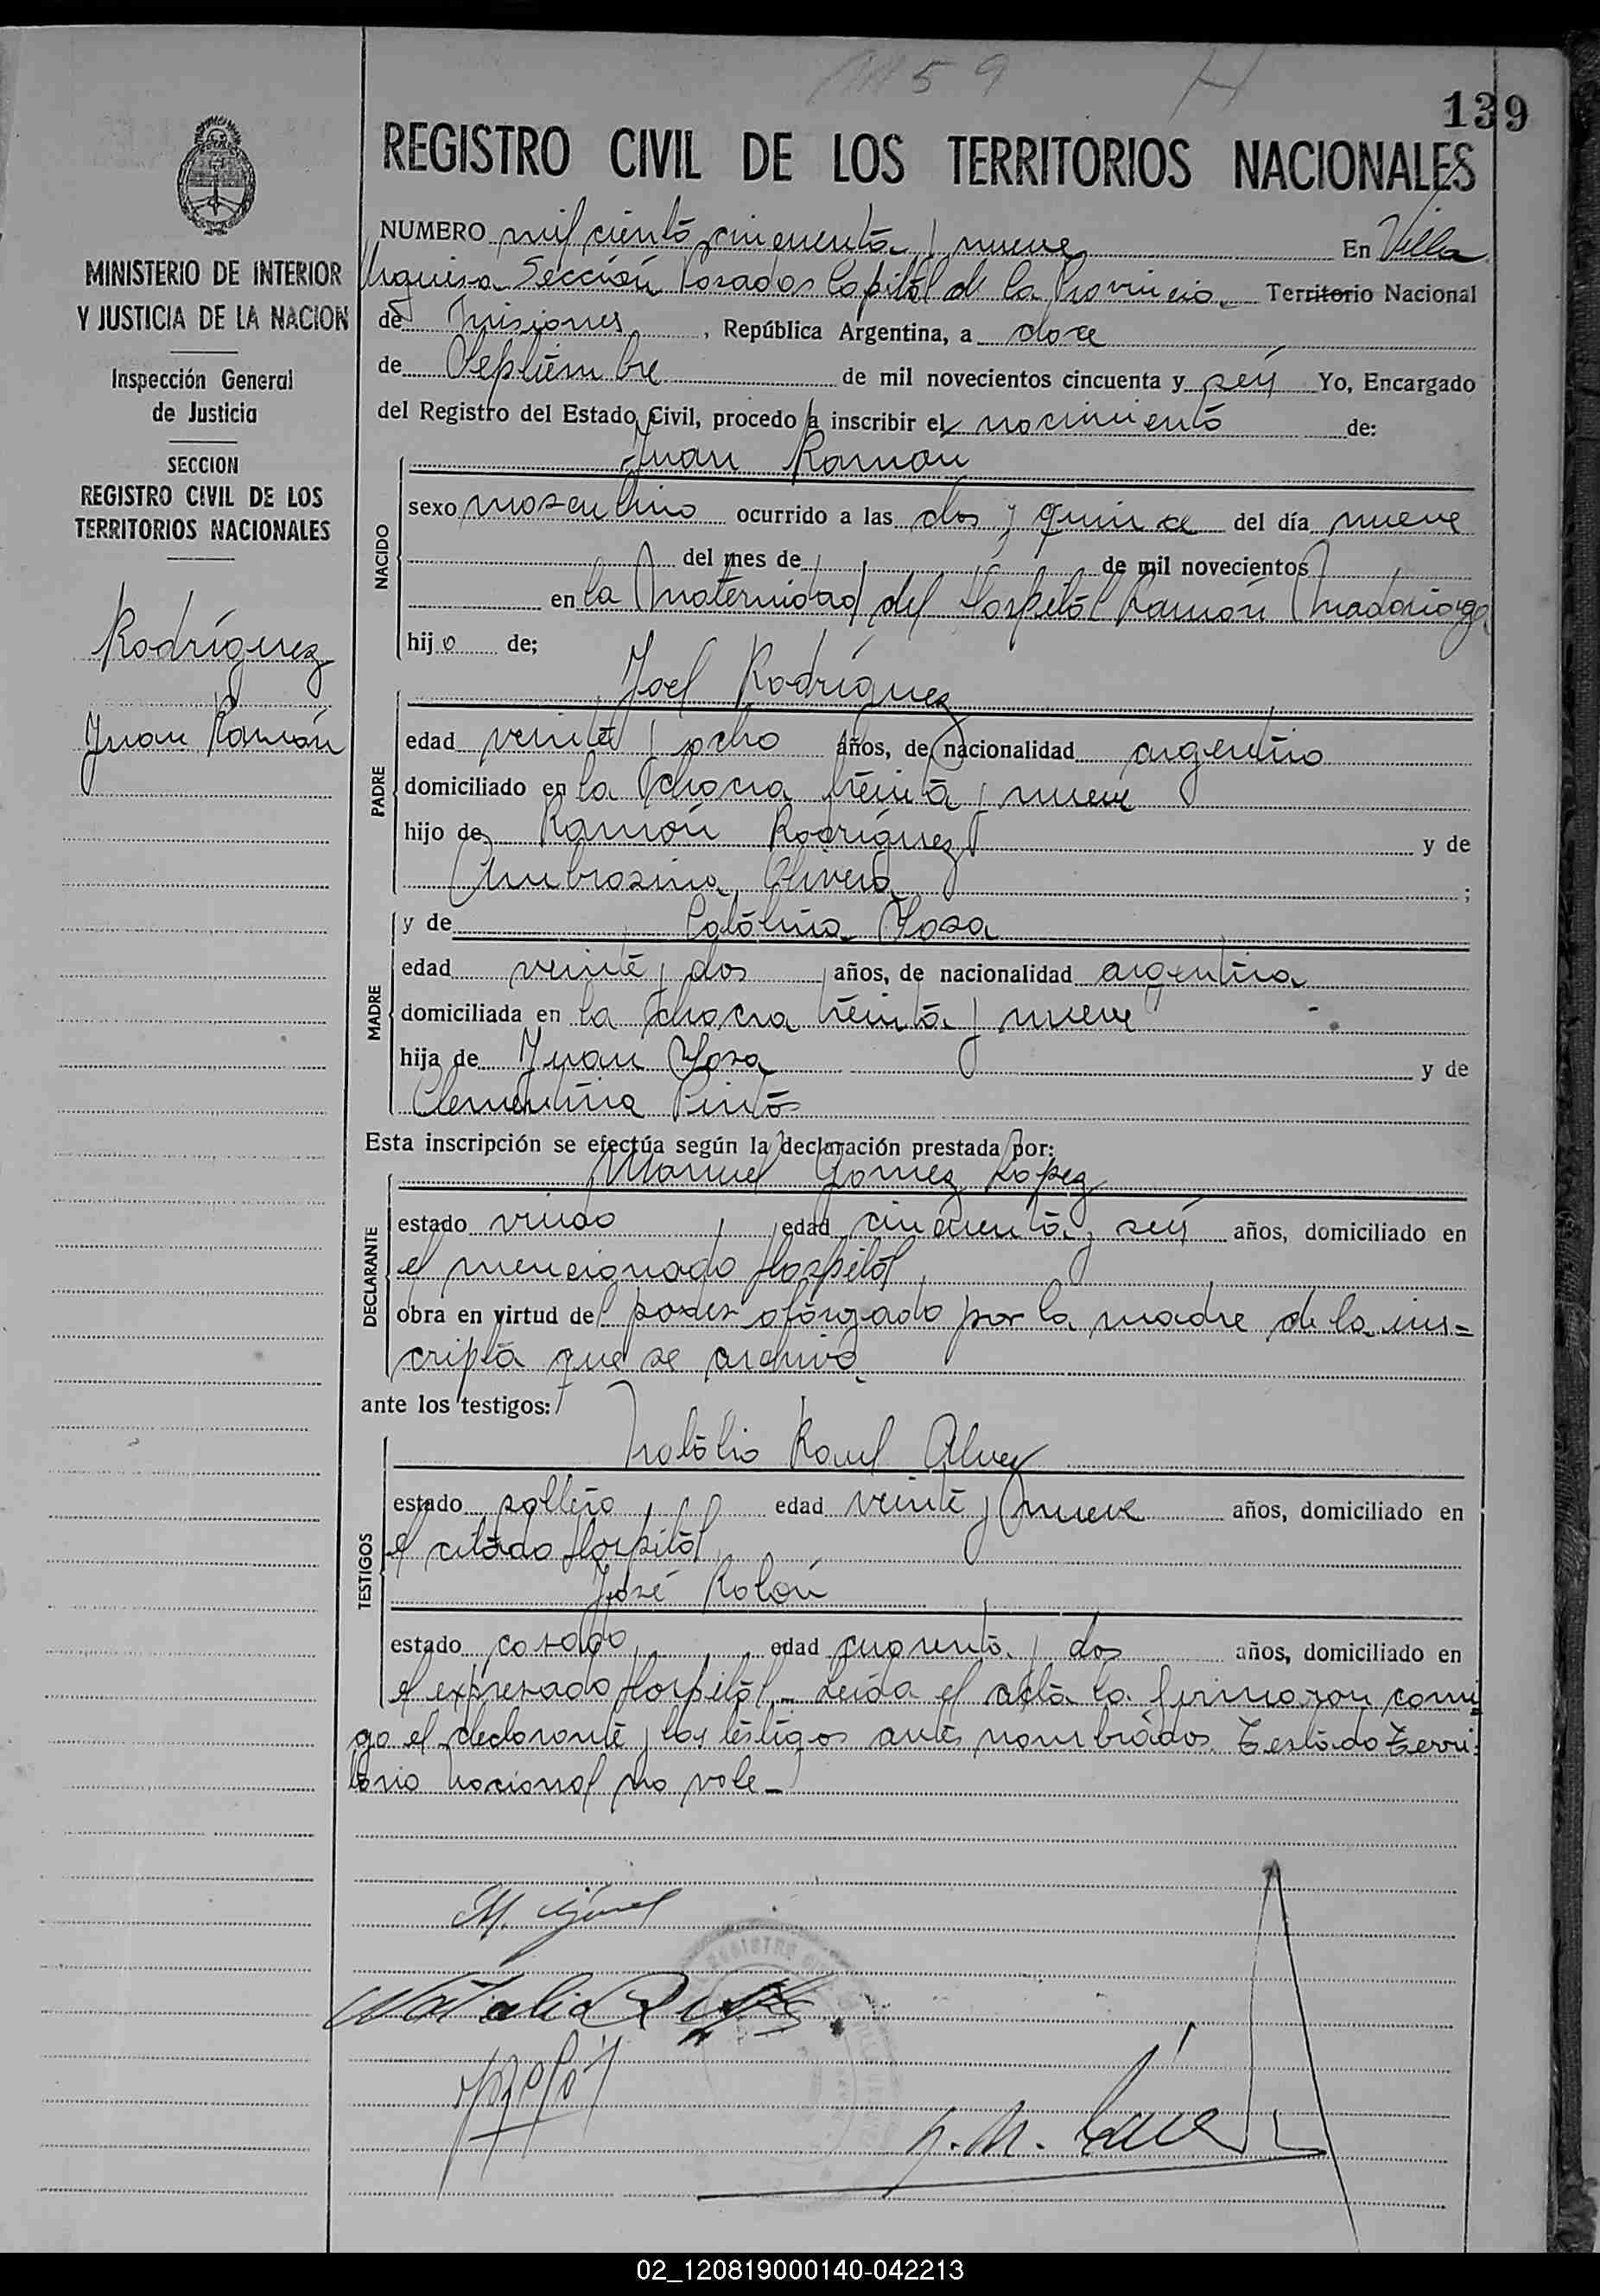 M59 H
139
REGISTRO CIVIL DE LOS TERRITORIOS NACIONALES
MINISTERIO DE INTERIOR
Y JUSTICIA DE LA NACION
Inspección General
de Justicia
SECCION
REGISTRO CIVIL DE LOS
TERRITORIOS NACIONALES
Rodríguez
Juan Ramón
NUMERO mil ciento cincuenta y nueve En Villa
Urquiza Sección Posadas Capital de la Provincia Territorio Nacional
de Misiones, República Argentina, a doce
de Septiembre de mil novecientos cincuenta y seis Yo, Encargado
del Registro del Estado Civil, procedo a inscribir el nacimiento de:
NACIDO
Juan Ramón
sexo masculino ocurrido a las dos y quince del día nueve
del mes de de mil novecientos
en la Maternidad del Hospital Ramón Madariaga
hijo de;
PADRE
Joel Rodríguez
edad veinte y ocho años, de nacionalidad argentino
domiciliado en la chacra treinta y nueve
hijo de Ramón Rodríguez y de
Ambrosina Olivera;
MADRE
y de Catalina Sosa
edad veinte y dos años, de nacionalidad argentina
domiciliada en la chacra treinta y nueve
hija de Juan Sosa y de
Clementina Pinto
Esta inscripción se efectúa según la declaración prestada por:
DECLARANTE
Manuel Gomez Lopez
estado viudo edad cincuenta y seis años, domiciliado en
el mencionado Hospital
obra en virtud del poder otorgado por la madre de la ins=
cripta que se archiva
ante los testigos:
TESTIGOS
Natalio Raul Alvez
estado soltero edad veinte y nueve años, domiciliado en
el citado Hospital
José Rolón
estado casado edad cuarenta y dos años, domiciliado en
el expresado Hospital.- Leída el acta la firmaron conmi=
go el declarante y los testigos antes nombrados. Testado Terri=
torio Nacional no vale-
02_120819000140-042213